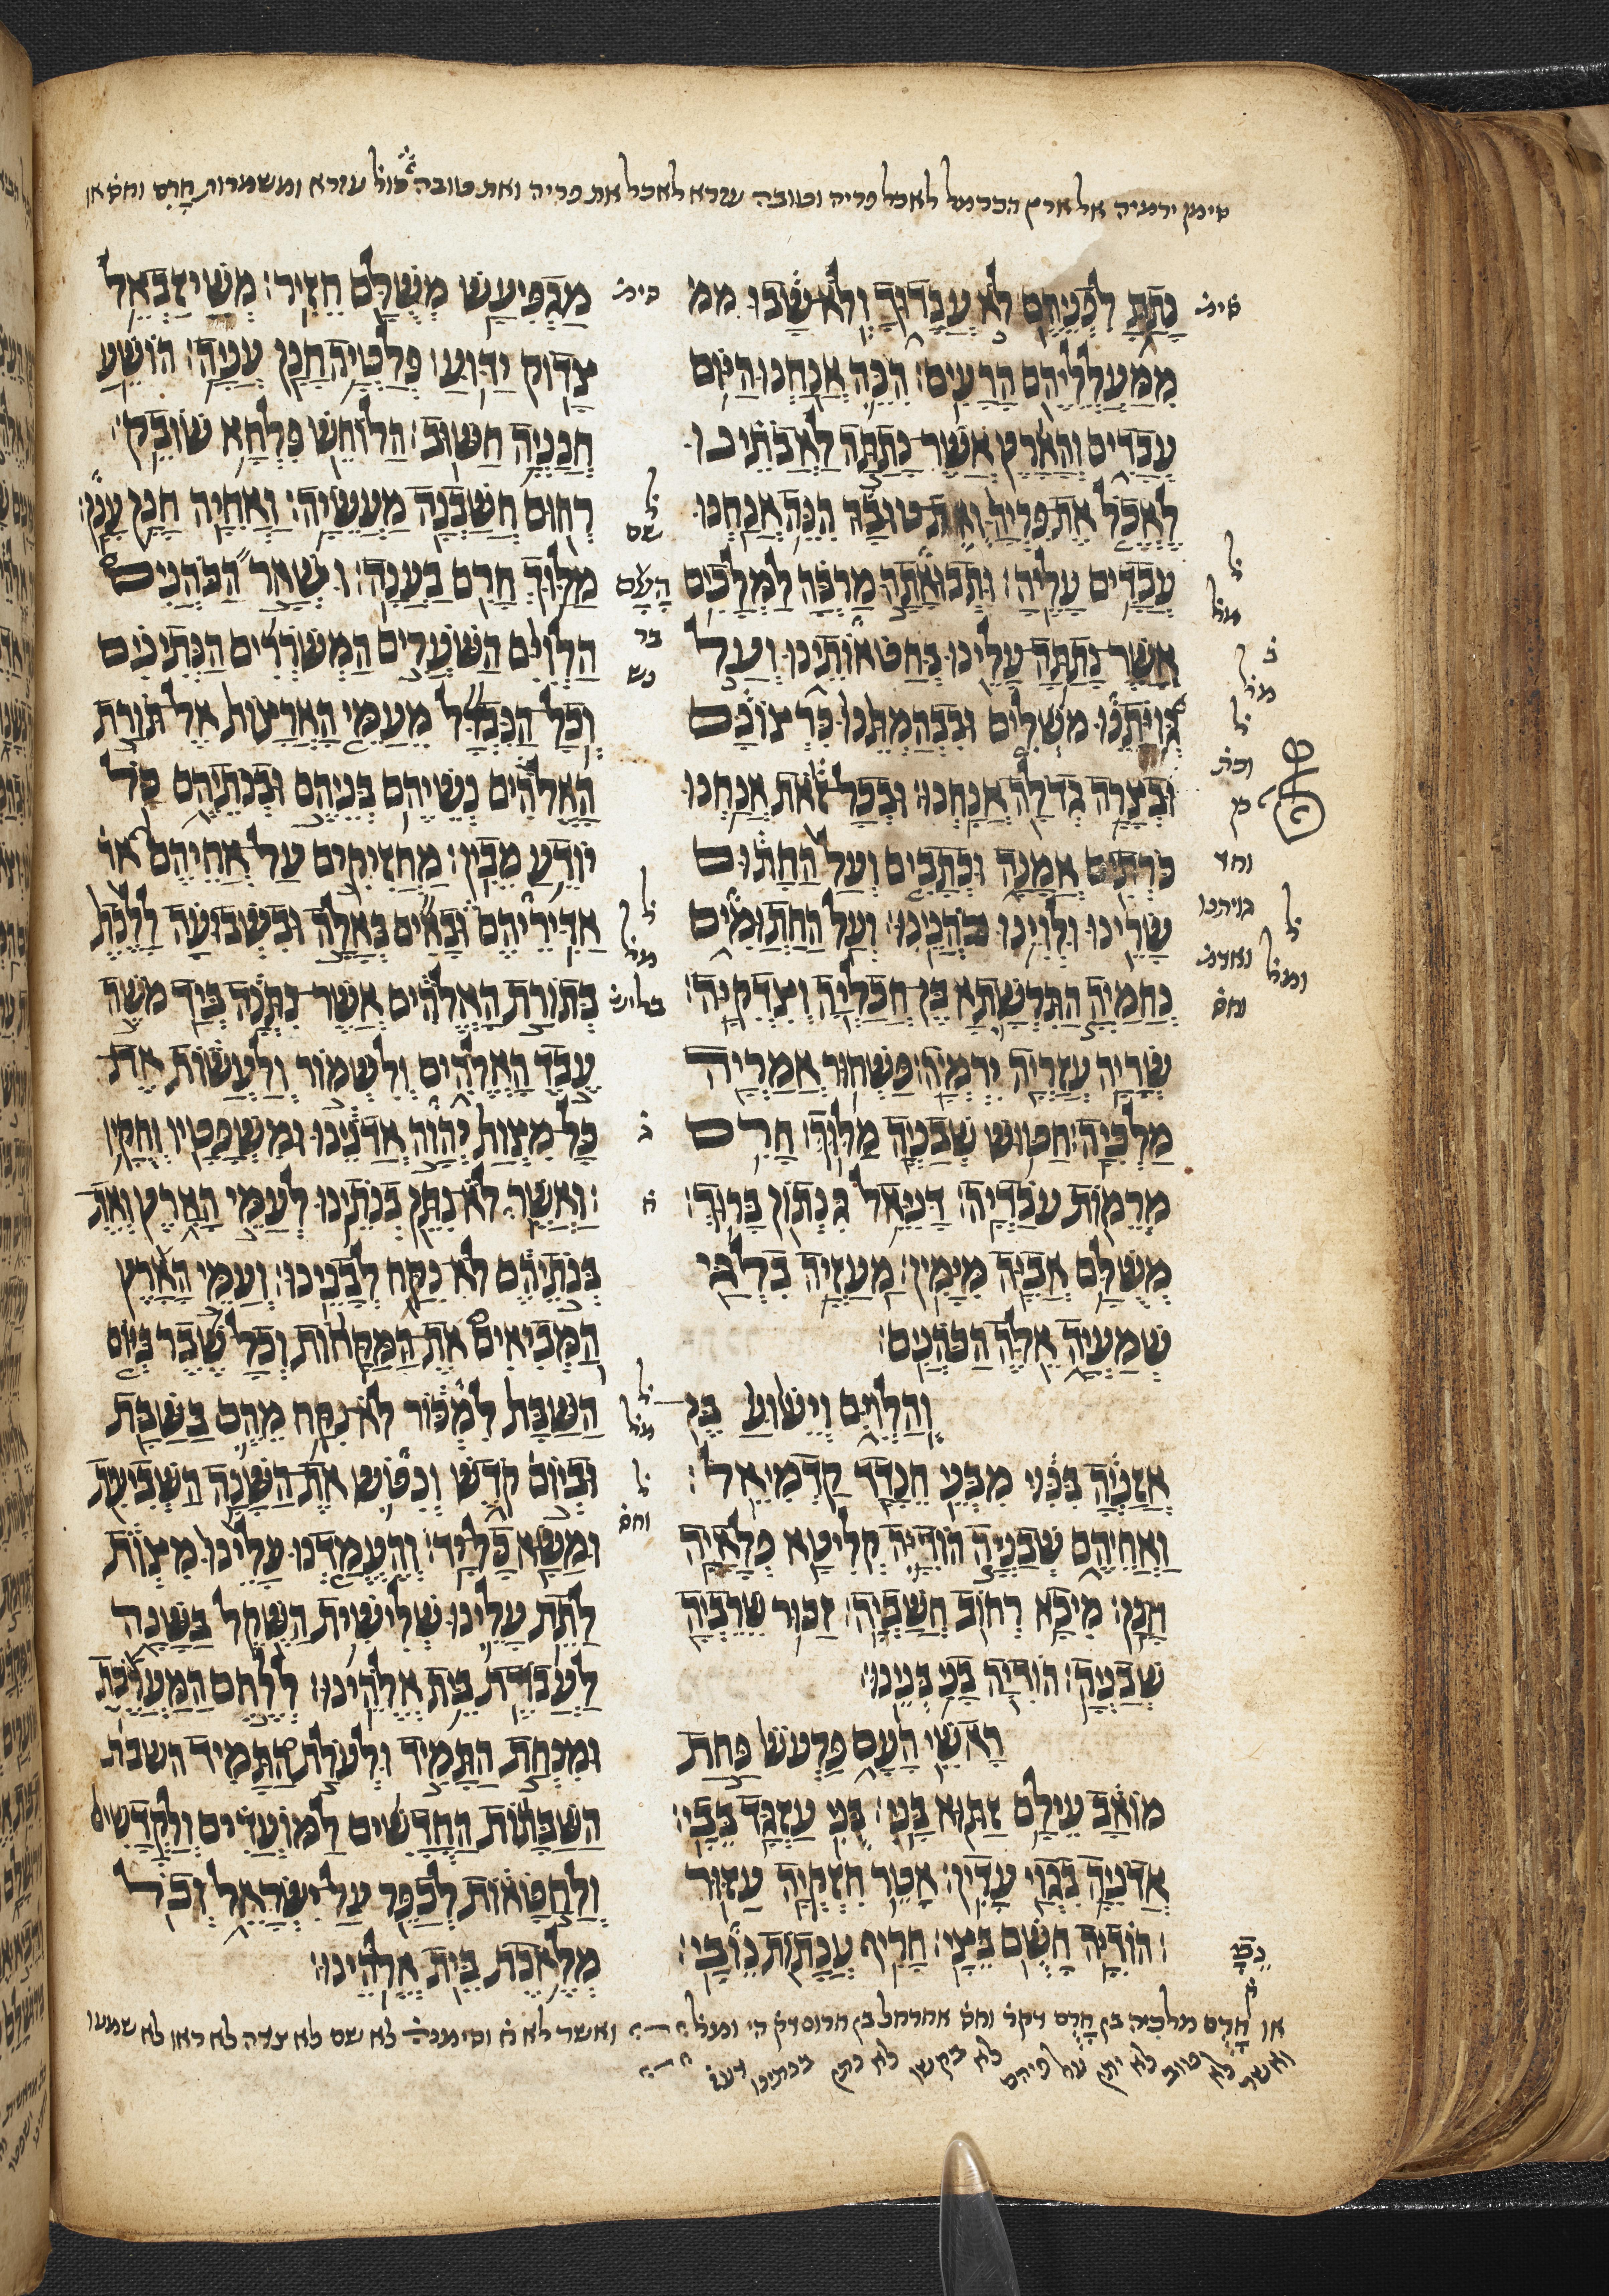 סימן ירמיה אל ארץ הכרמל לאכל פריה וטובה עזרא לאכל את פריה ואת טובה עזרא ומשמרות חרם
נתת לפניהם לא עבדוך ולא שבו ממ
ממעלליהם הרעים׃ הנה אנחנו היום
עבדים והארץ אשר נתתה לאבתינו
לאכל את פריה ואת טובה הנה אנחנו
עבדים עליה׃ ותבואתה מרבה למלכים
אשר נתתה עלינו בחטאותינו ועל
גויתנו משלים ובבהמתנו כרצונם
ובצרה גדלה אנחנו׃ ובכל זאת אנחנו
כרתים אמנה וכתבים ועל החתום
שרינו ולוינו כהנינו׃ ועל החתומים
נחמיה התרשתא בן חכליה וצדקיה׃
שריה עזריה ירמיה׃ פשחור אמריה
מלכיה׃ חטוש שבניה מלוך׃ חרם
מרמות עבדיה׃ דניאל גנתון ברוך׃
משלם אביה מימן׃ מעזיה בלגי
שמעיה אלה הכהנים׃
והלוים וישוע בן
אזניה בנוי מבני חנדד קדמיאל׃
ואחיהם שבניה הודיה קליטא פלאיה
חנן׃ מיכא רחוב חשביה׃ זכור שרביה
שבניה׃ הודיה בני בנינו׃
ראשי העם פרעש פחת
מואב עילם זתוא בני׃ בני עזגד בבי׃
אדניה בגוי עדין׃ אטר חזקיה עזור
הודיה חשם בצי׃ חריף ענתות נובי׃
מגפיעש משלם חזיר׃ משיזבאל
צדוק ידוע׃ פלטיה חנן עניה׃ הושע
חנניה חשוב׃ הלוחש פלחא שובק׃
רחום חשבנה מעשיה׃ ואחיה חנן ענן׃
מלוך חרם בענה׃ ושאר העם הכהנים
הלוים השערים המשררים הנתינים
וכל הנבדל מעמי הארצות אל תורת
האלהים נשיהם בניהם ובנתיהם כל
יודע מבין׃ מחזיקים על אחיהם
אדיריהם ובאים באלה ובשבועה ללכת
בתורת האלהים אשר נתנה ביד משה
עבד האלהים ולשמור ולעשות את
כל מצות יהוה אדנינו ומשפטיו וחקיו
׃ואשר לא נתן בנתינו לעמי הארץ ואת
בנתיהם לא נקח לבנינו׃ ועמי הארץ
המביאים את המקחות וכל שבר ביום
השבת למכור לא נקח מהם בשבת
וביום קדש ונטש את השנה השביעת
ומשא כל יד׃ והעמדנו עלינו מצות
לתת עלינו שלישית השקל בשנה
לעבדת בית אלהינו׃ ללחם המערכת
ומנחת התמיד ולעולת התמיד השבת
השבתות החדשים למועדים ולקדשים
ולחטאות לכפר על ישראל וכל
מלאכת בית אלהינו׃
או לחרם מלכיה בן חרם ואשר לא וסימניה לא שם לא צדה לא ראו לא שמעו
ואשר לא טוב לא יתן על פיהם לא בקשו לא נתן בנתינו